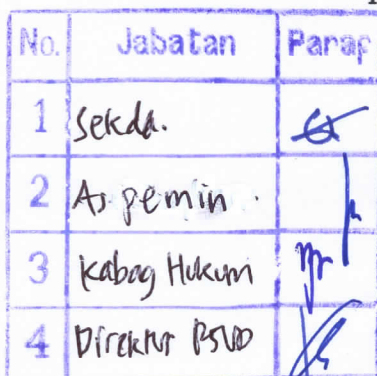 No. Jabatan Paraf
1 Sekda.
2 As pemin.
3 Kabag Hukum
4 Direktur RSUD